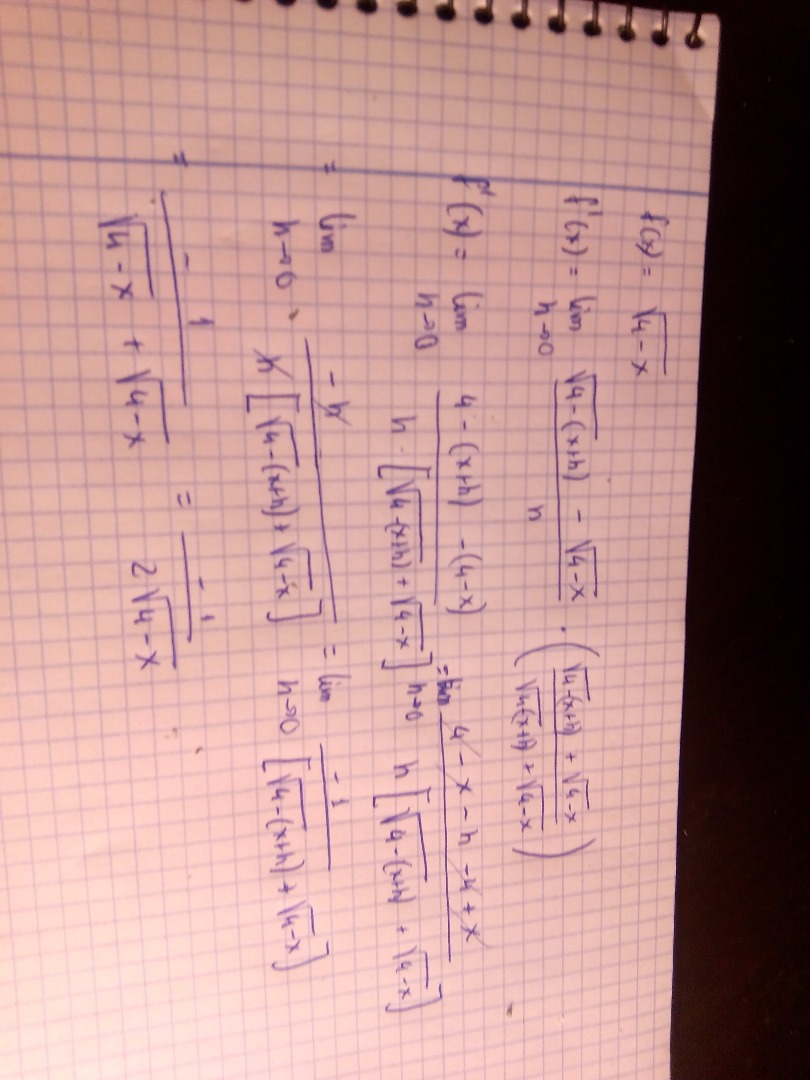 f(x) = √(4-x)
f'(x) = lim h→0 (√(4-(x+h)) - √(4-x))/h · ((√(4-(x+h)) + √(4-x))/(√(4-(x+h)) + √(4-x)))
f'(x) = lim h→0 (4-(x+h) - (4-x))/(h · [√(4-(x+h)) + √(4-x)]) = lim h→0 (4 - x - h - 4 + x)/(h[√(4-(x+h)) + √(4-x)])
= lim h→0 (-h)/(h[√(4-(x+h)) + √(4-x)]) = lim h→0 (-1)/([√(4-(x+h)) + √(4-x)])
= (-1)/(√(4-x) + √(4-x)) = (-1)/(2√(4-x))